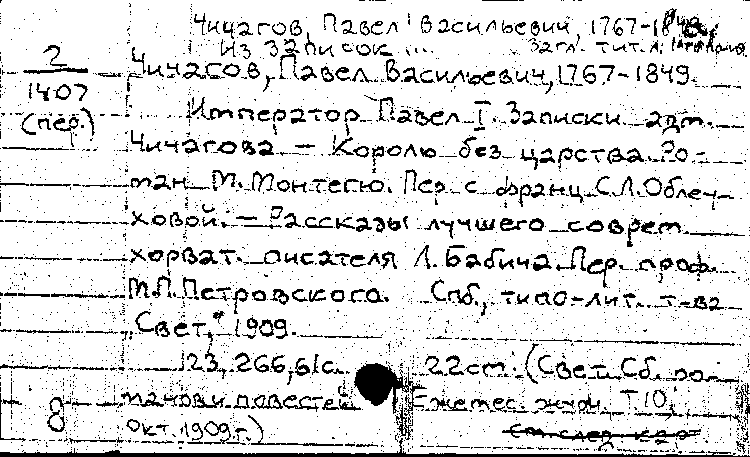 Чичагов, Павел Васильевич, 1767-18
Из записок ... Загл. тит. л.
2
Чичагов, Павел Васильевич, 1767-1849.
1407
Император Павел I. Записки адм.
(пер.)
Чичагова — Королю без царства. Ро-
ман М. Монтегю. Пер. с франц. С.Л. Облеу-
ховой. — Рассказы лучшего соврем.
хорват. писателя Л. Бабича. Пер. проф.
М.П. Петровского. Спб., типо-лит. т-ва
„Свет," 1909.
123, 266, 61с. 22cm. (Свет. Сб. ро-
манов и повестей. Ежемес. журн. Т 10,
8
окт. 1909 г.)
См. след. кар.